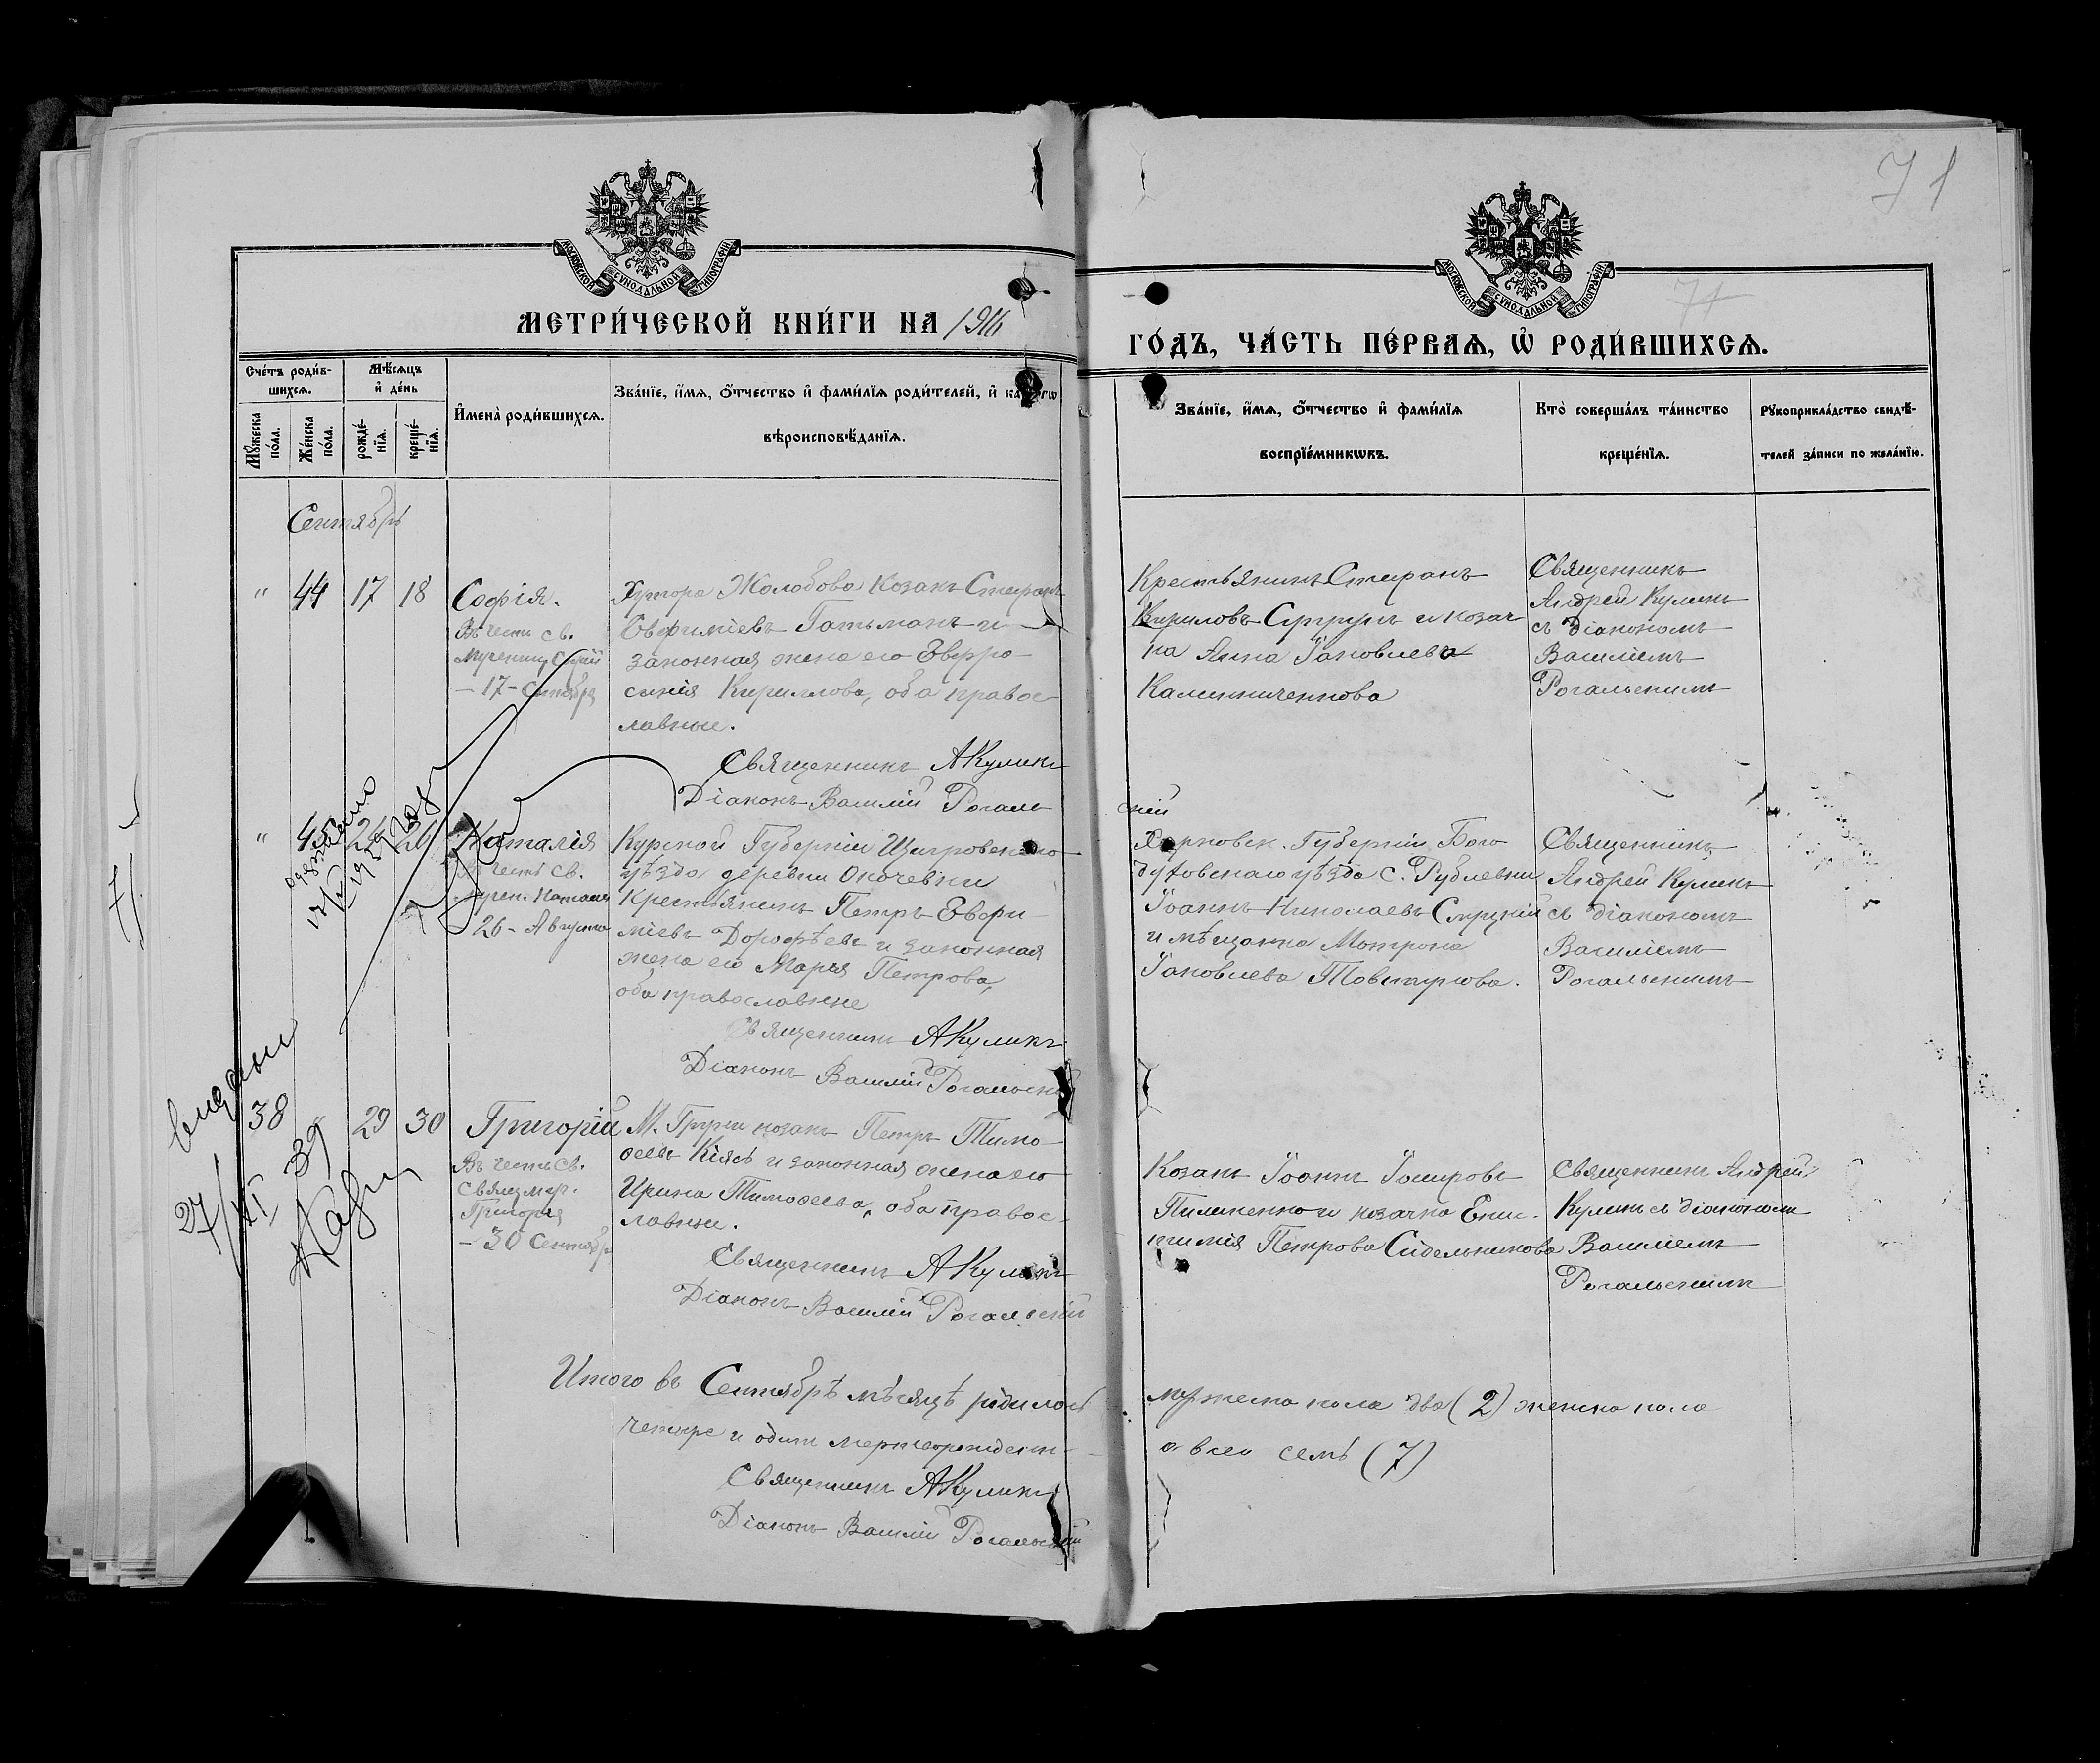 71
МОСКОВСКОЙ СѴНОДАЛЬНОЙ ТИПОГРАФІИ
МОСКОВСКОЙ СѴНОДАЛЬНОЙ ТИПОГРАФІИ
МЕТРИ́ЧЕСКОЙ КНИ́ГИ НА 1916
ГО́ДЪ, ЧА́СТЬ ПЕ́РВАѦ, Ѡ҆ РОДИ́ВШИХСѦ.
Сче́тъ роди́в-
шихсѧ.
Мѣ́сѧцъ
и҆ де́нь
Мꙋ́жеска по́ла.
Же́нска по́ла.
рожде́-
нїѧ.
креще́-
нїѧ.
И҆мена̀ роди́вшихсѧ.
Зва́нїе, и҆́мѧ, ѻ҆́тчество и҆ фами́лїѧ роди́телей, и҆ како́гѡ
вѣроисповѣ́данїѧ.
Зва́нїе, и҆́мѧ, ѻ҆́тчество и҆ фами́лїѧ
воспрїе́мникѡвъ.
Кто̀ соверша́лъ та́инство
креще́нїѧ.
Рꙋкоприкла́дство свидѣ́-
телей за́писи по жела́нїю.
Сентябрь
" 44 17 18
Софія.
Въ честь св.
мучениц Софіи
– 17 – Сентября
Хутора Жолобова козакъ Стефанъ
Евфиміевъ Гатьманъ и
законная жена его Евфро
синія Кириллова, оба правос
лавные.
Священникъ А Куликъ
Діаконъ Василій Рогаль
скій
Крестьянинъ Стефанъ
Кириловъ и козач
ка Анна Іаковлева
Калиниченкова
Священникъ
Андрей Куликъ
съ діакономъ
Василіемъ
Рогальскимъ
" 45
Наталія
въ честь св.
мучен. Наталіи
26 – Августа
Курской Губерніи Щигровскаго
уѣзда деревни
Крестьянинъ Петръ Евфи
міевъ Дорофѣевъ и законная
жена его Марія Петрова,
оба православные
Священникъ А Куликъ
Діаконъ Василій Рогальскій
Харковск. Губерніи, Бого
духовскаго уѣзда с. Рублевки
Іоаннъ Николаевъ
и мѣщанка Мотрона
Іаковлева
Священникъ
Андрей Куликъ
съ діакономъ
Василіемъ
Рогальскимъ
38 " 29 30
Григорій
Въ честь св.
Священмар.
Григорія
– 30 Сентябр
козакъ Петръ Тимо
ѳеевъ и законная жена его
Ирина Тимоѳеева, оба правос-
лавные.
Священникъ А Куликъ
Діаконъ Василій Рогальскій
Козакъ Іоаннъ
Пилипенко и козачка
Петрова Сидельникова
Священникъ Андрей
Куликъ съ діакономъ
Василіемъ
Рогальскимъ
27/XI 39
Итого въ Сентябрѣ мѣсяцѣ родилось
мужеска пола два (2) женска пола
четыре и одинъ мертворожден-
а всего семь (7)
Священникъ А Куликъ
Діаконъ Василій Рогальскій